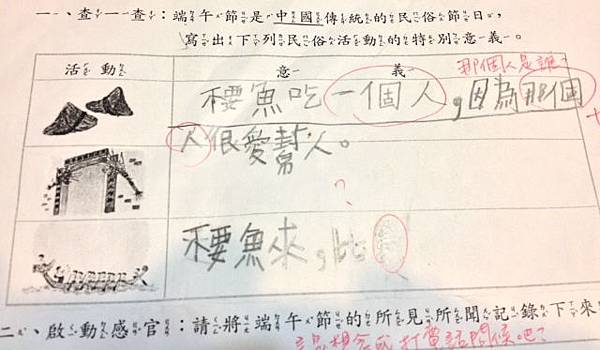 一、查一查：端午節是中國傳統的民俗節日，
寫出下列民俗活動的特別意義。
活動 意義
那個人是誰？
不要魚吃一個人，因為那個
人很愛幫人。
？
不要魚來，比
二、啟動感官：請將端午節的所見所聞記錄下來
打電話問候吧？